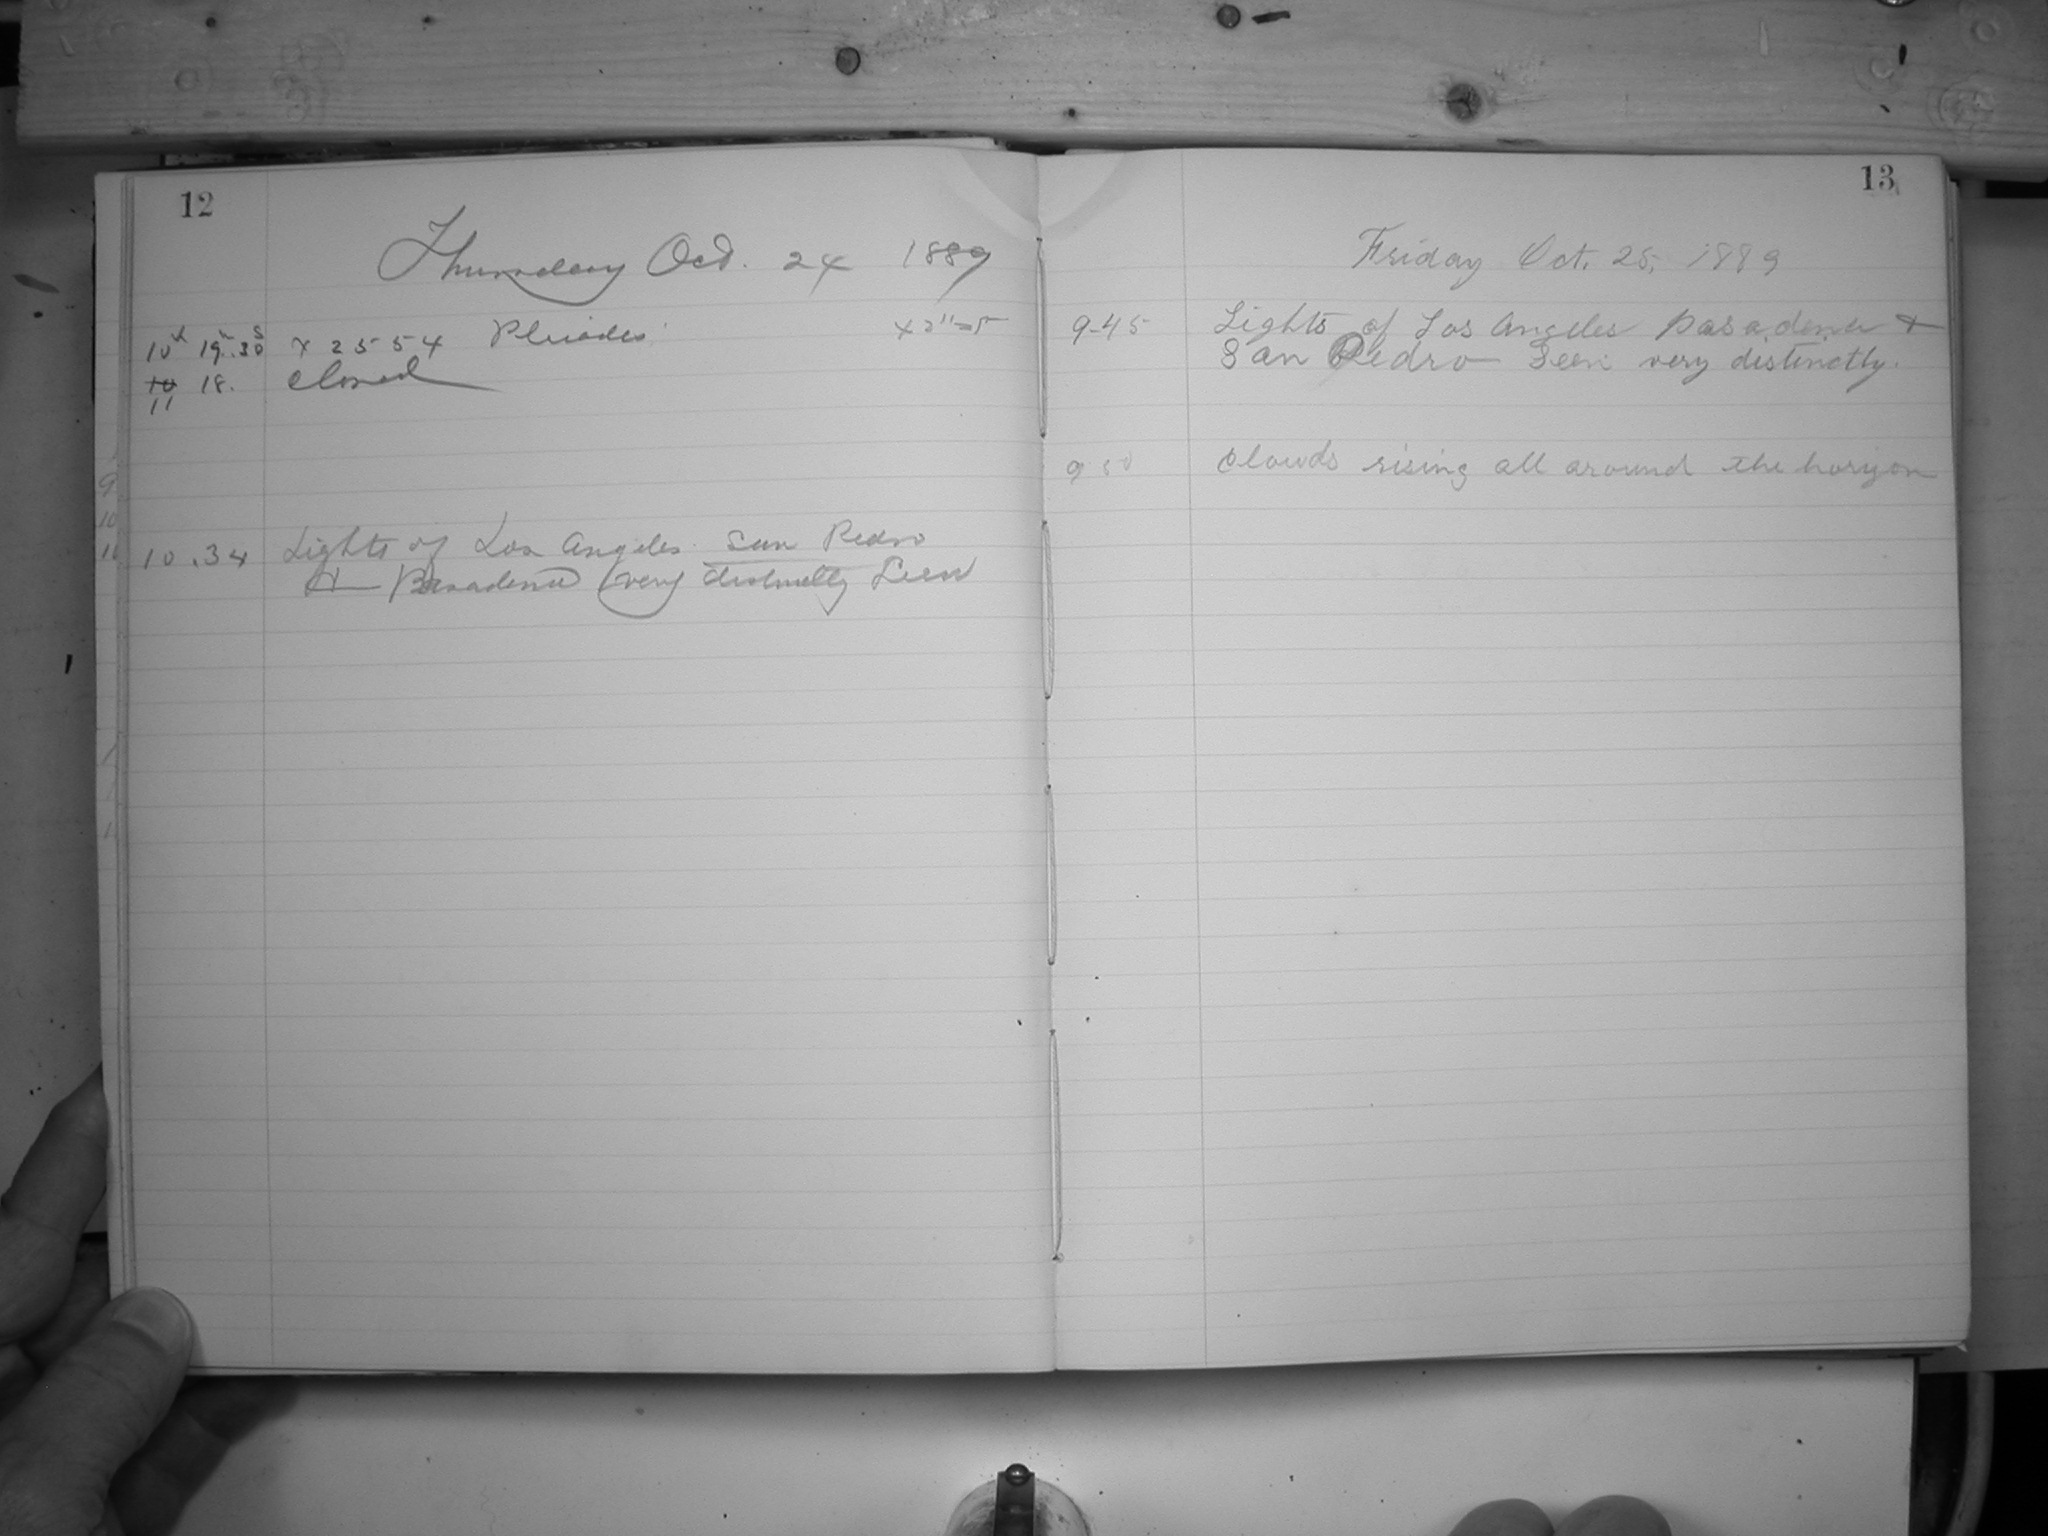 12
Thursday Oct. 24 1889
10h 19m.30s x 2554 Pleiades
10 18. Closed
11
10.34 Lights of Los Angeles San Pedro
& Pasadena very distinctly Seen
13
Friday Oct. 25, 1889
9-45 Lights of Los Angeles Pasadena &
San Pedro Seen very distinctly.
9 50 Clouds rising all around the horizon